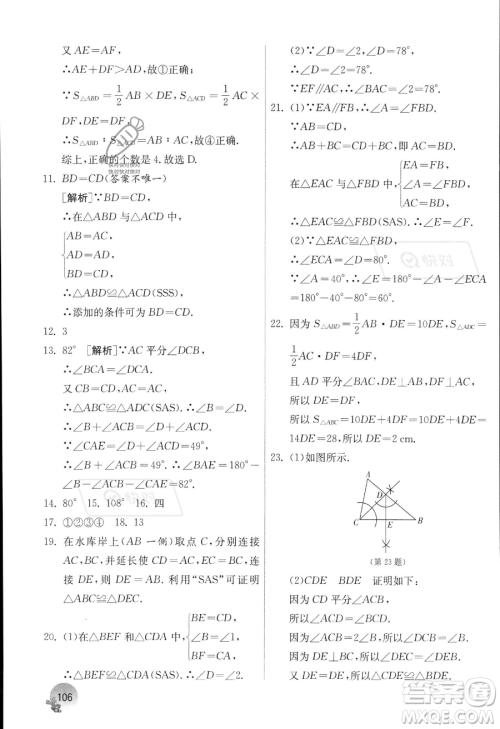 又 AE=AF,
∴AE+DF>AD,故①正确.
∵S△ABD=1/2 AB×DE, S△ACD=1/2 AC×
DF,DE=DF,
∴S△ABD∶S△ACD=AB∶AC,故④正确.
综上,正确的个数是 4.故选 D.
11. BD=CD(答案不唯一)
[解析]∵BD=CD,
∴在△ABD 与△ACD 中,
AB=AC,
AD=AD,
BD=CD,
∴△ABD≌△ACD(SSS).
∴添加的条件可为 BD=CD.
12. 3
13. 82° [解析]∵AC 平分∠DCB,
∴∠BCA=∠DCA.
又∵CB=CD,AC=AC,
∴△ABC≌△ADC(SAS).∴∠B=∠D.
∴∠B+∠ACB=∠D+∠ACD.
∵∠CAE=∠D+∠ACD=49°,
∴∠B+∠ACB=49°.∴∠BAE=180°
−∠B−∠ACB−∠CAE=82°.
14. 80° 15. 108° 16. 四
17. ①②③④ 18. 13
19. 在水库岸上(AB 一侧)取点 C,分别连接
AC,BC,并延长使得 CD=BC,CE=
AC,连接 DE,利用“SAS”可证得 AB
=DE.
20. (1)在△BEF 和△CDA 中,
BE=CD,
∠B=∠1,
BF=CA,
∴△BEF≌△CDA(SAS).∴∠D=∠2.
(2)∵∠D=∠2,∴∠D=∠2=78°.
∵EF//AC,∴∠BAC=∠2=78°.
21. (1)∵EA//FB,∴∠A=∠FBD.
∵AB=CD,
∴AB+BC=CD+BC,即 AC=BD.
在△EAC 与△FBD 中,
EA=FB,
∠A=∠FBD,
AC=BD,
∴△EAC≌△FBD(SAS).∴∠E=∠F.
(2)∵△EAC≌△FBD,
∴∠ECA=∠D=80°.
∵∠A=40°,∴∠E=180°−∠A−
∠ECA=180°−40°−80°=60°.
22. 因为 S△ABD=1/2 AB·DE=10,S△ADC=
1/2 AC·DF=14,
且 AD 平分∠BAC,DE⊥AB,DF⊥AC,
所以 DE=DF.
所以 1/2 AB·DE+1/2 AC·DF=10+
14=28,所以 DE=2 cm.
23. (1)如图所示.
A
D
C
E
B
(第 23 题)
(2)CDE BDE 证明如下:
因为 CD 平分∠ACB,
所以∠ACD=∠BCD.
因为∠ACB=2∠B,
所以∠DCE=∠B.
又因为 DE⊥BC,所以∠DEC=∠DEB.
106